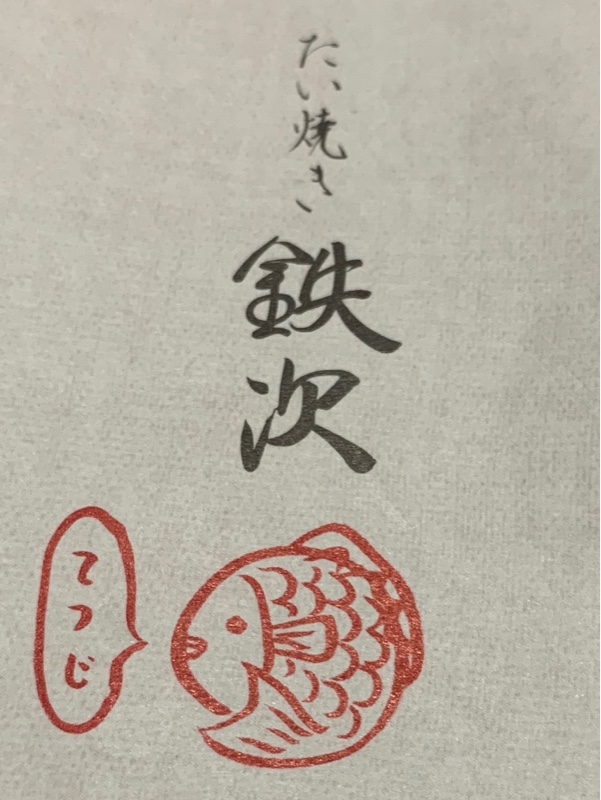 たい焼き
鉄次
てつじ